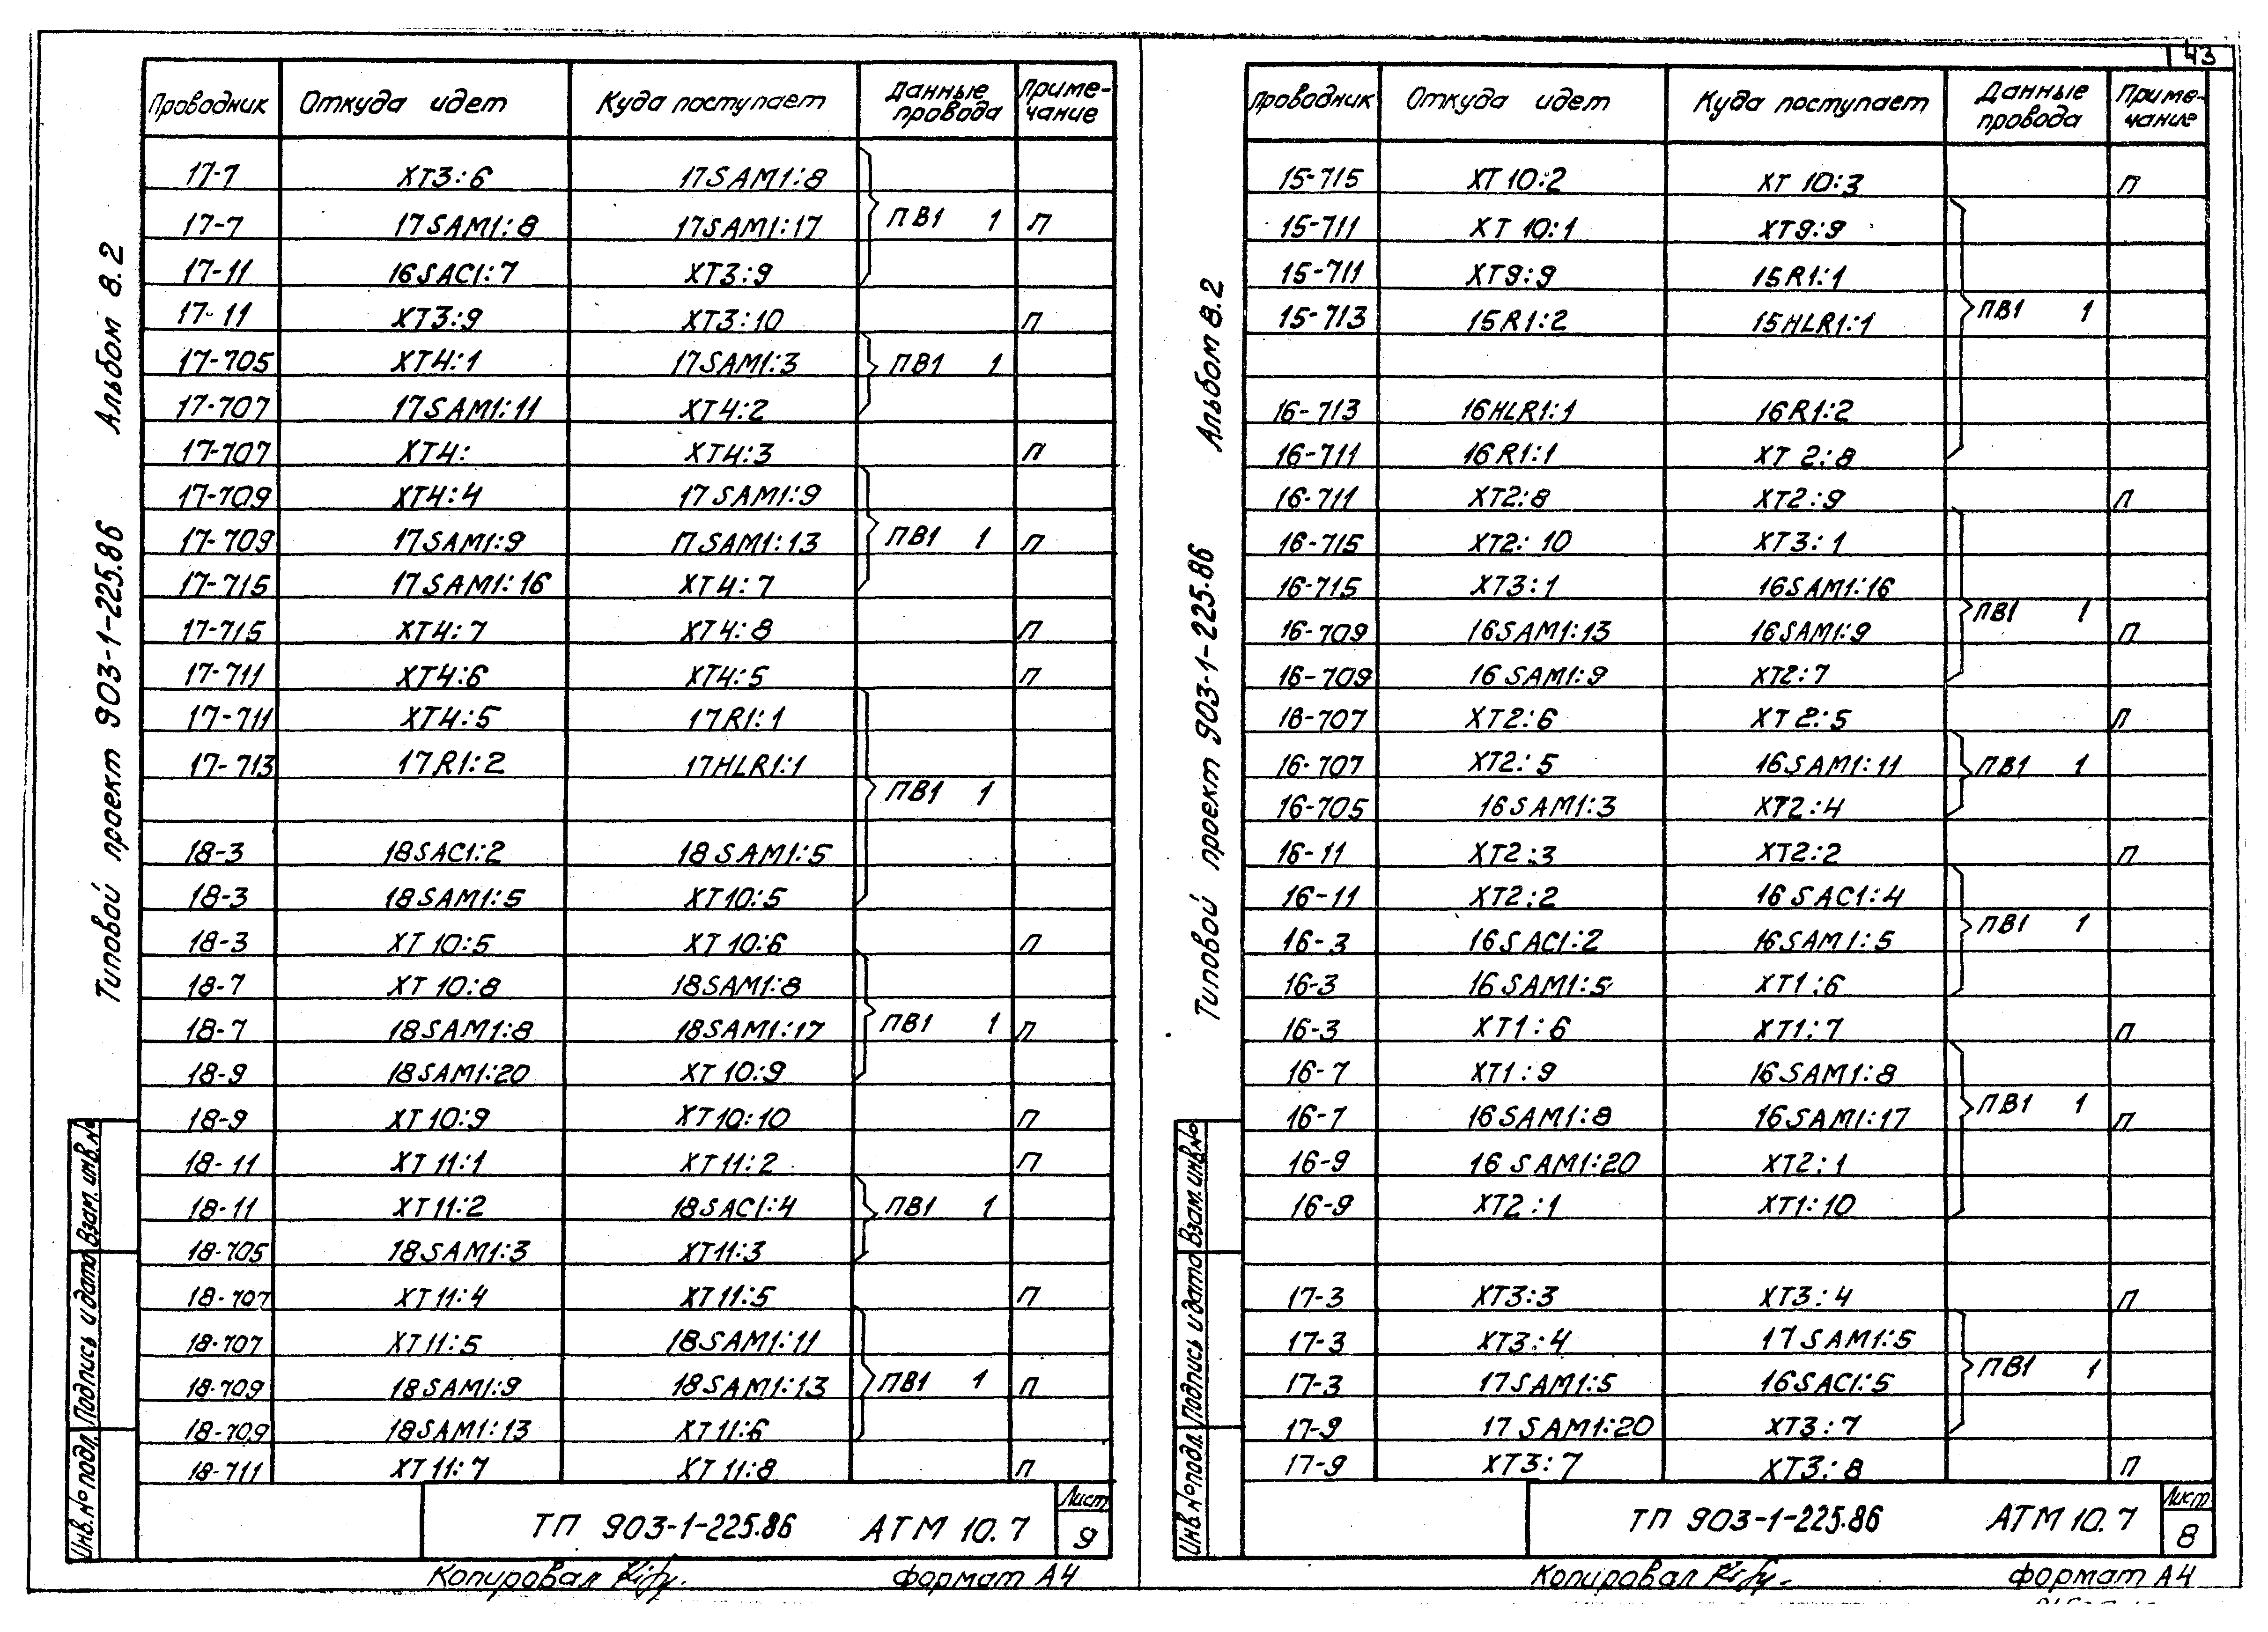 43
Проводник Откуда идет Куда поступает Данные провода Приме-чание
17-7 XT3:6 17SAM1:8
17-7 17SAM1:8 17SAM1:17 ПВ1 1 П
17-11 16SAC1:7 XT3:9
17-11 XT3:9 XT3:10 П
17-705 XT4:1 17SAM1:3 ПВ1 1
17-707 17SAM1:11 XT4:2
17-707 XT4: XT4:3 П
17-709 XT4:4 17SAM1:9
17-709 17SAM1:9 17SAM1:13 ПВ1 1 П
17-715 17SAM1:16 XT4:7
17-715 XT4:7 XT4:8 П
17-711 XT4:6 XT4:5 П
17-711 XT4:5 17R1:1
17-713 17R1:2 17HLR1:1
ПВ1 1
18-3 18SAC1:2 18SAM1:5
18-3 18SAM1:5 XT10:5
18-3 XT10:5 XT10:6 П
18-7 XT10:8 18SAM1:8
18-7 18SAM1:8 18SAM1:17 ПВ1 1 П
18-9 18SAM1:20 XT10:9
18-9 XT10:9 XT10:10 П
18-11 XT11:1 XT11:2 П
18-11 XT11:2 18SAC1:4 ПВ1 1
18-705 18SAM1:3 XT11:3
18-707 XT11:4 XT11:5 П
18-707 XT11:5 18SAM1:11
18-709 18SAM1:9 18SAM1:13 ПВ1 1 П
18-709 18SAM1:13 XT11:6
18-711 XT11:7 XT11:8 П
ТП 903-1-225.86 АТМ 10.7
Лист
9
Копировал
формат А4
Типовой проект 903-1-225.86 Альбом 8.2
Инв.№ подл. Подпись и дата Взам. инв.№
Проводник Откуда идет Куда поступает Данные провода Приме-чание
15-715 XT10:2 XT10:3 П
15-711 XT10:1 XT9:9
15-711 XT9:9 15R1:1
15-713 15R1:2 15HLR1:1 ПВ1 1
16-713 16HLR1:1 16R1:2
16-711 16R1:1 XT2:8
16-711 XT2:8 XT2:9 П
16-715 XT2:10 XT3:1
16-715 XT3:1 16SAM1:16
16-709 16SAM1:13 16SAM1:9 ПВ1 1 П
16-709 16SAM1:9 XT2:7
16-707 XT2:6 XT2:5 П
16-707 XT2:5 16SAM1:11 ПВ1 1
16-705 16SAM1:3 XT2:4
16-11 XT2:3 XT2:2 П
16-11 XT2:2 16SAC1:4
16-3 16SAC1:2 16SAM1:5 ПВ1 1
16-3 16SAM1:5 XT1:6
16-3 XT1:6 XT1:7 П
16-7 XT1:9 16SAM1:8
16-7 16SAM1:8 16SAM1:17 ПВ1 1 П
16-9 16SAM1:20 XT2:1
16-9 XT2:1 XT1:10
17-3 XT3:3 XT3:4 П
17-3 XT3:4 17SAM1:5
17-3 17SAM1:5 16SAC1:5 ПВ1 1
17-9 17SAM1:20 XT3:7
17-9 XT3:7 XT3:8 П
ТП 903-1-225.86 АТМ 10.7
Лист
8
Копировал
формат А4
Типовой проект 903-1-225.86 Альбом 8.2
Инв.№ подл. Подпись и дата Взам. инв.№